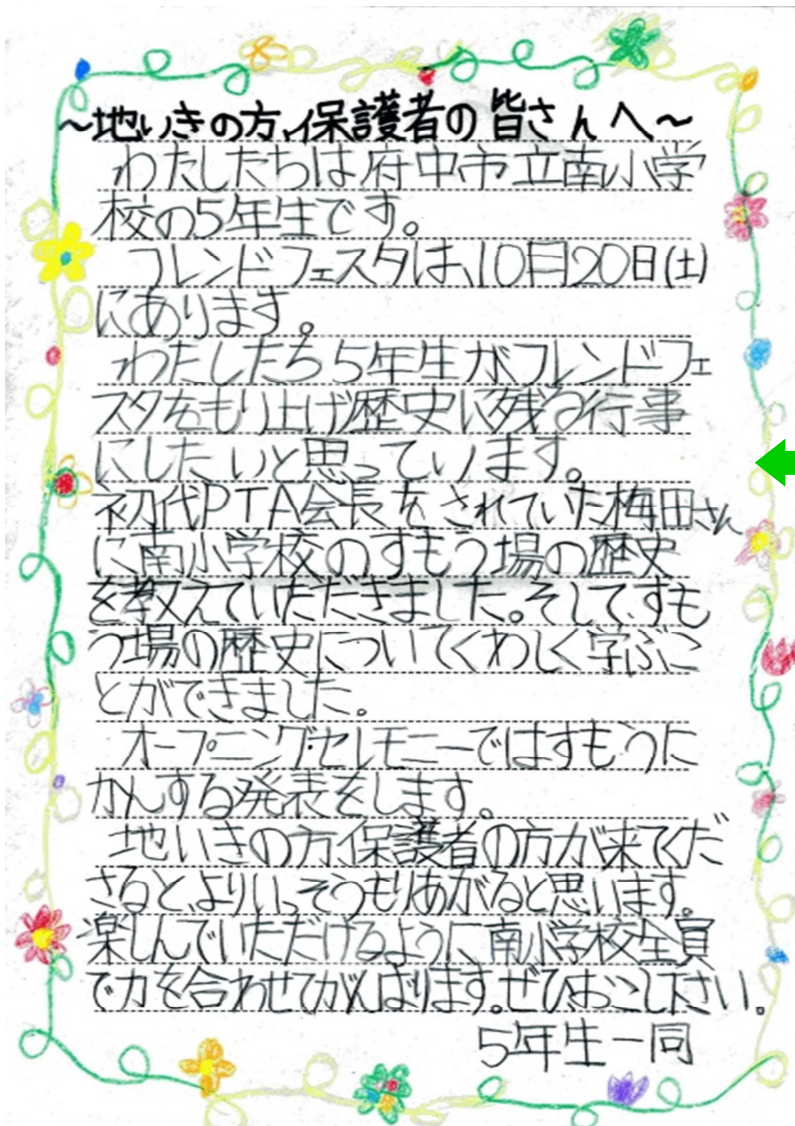 ～地いきの方、保護者の皆さんへ～
わたしたちは府中市立南小学
校の5年生です。
フレンドフェスタは、10月20日(土)
にあります。
わたしたち5年生がフレンドフェ
スタをもり上げ歴史に残る行事
にしたいと思っています。
初代PTA会長をされていた梅田さん
に南小学校のすもう場の歴史
を教えていただきました。そして、すも
う場の歴史についてくわしく学ぶこ
とができました。
オープニングセレモニーではすもうに
かんする発表をします。
地いきの方、保護者の方が来てくだ
さると、よりいっそうもりあがると思います。
楽しんでいただけるように南小学校全員
で力を合わせてがんばります。ぜひおこし下さい。
5年生一同